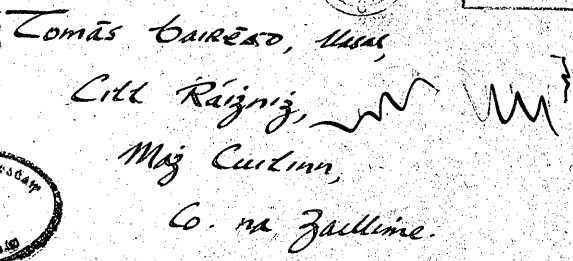 Tomás Bairéad, Uasal,
Cill Ráignig,
Mág Cuilinn,
Co. na Gaillime.